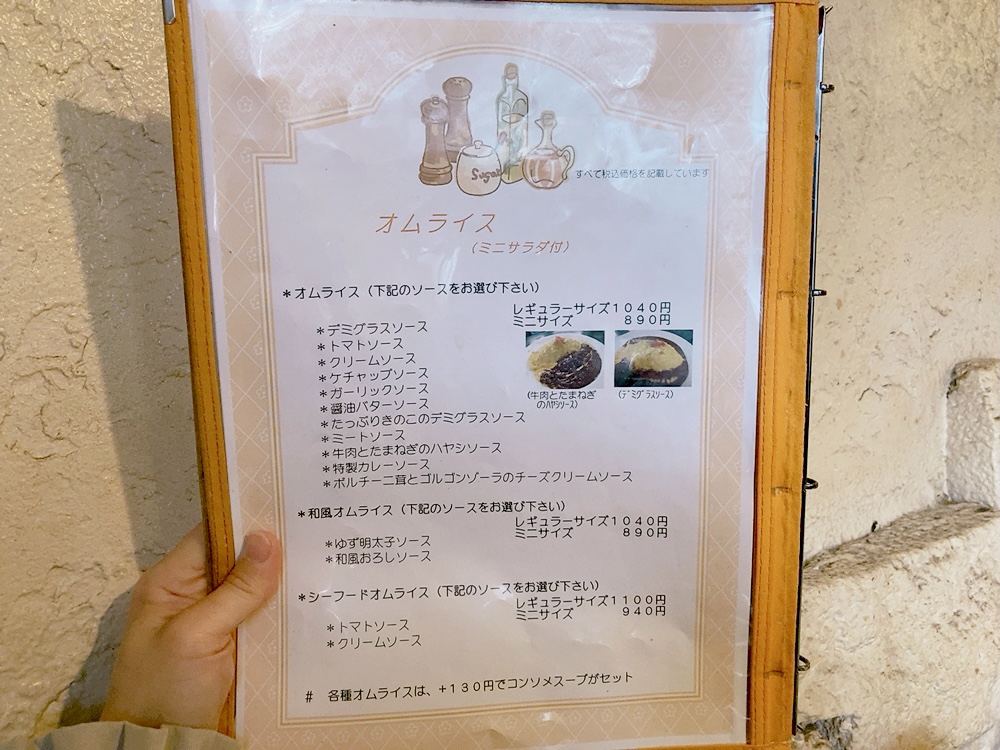 Sugar
すべて税込価格を記載しています
オムライス
(ミニサラダ付)
＊オムライス（下記のソースをお選び下さい）
レギュラーサイズ１０４０円
ミニサイズ　８９０円
＊デミグラスソース
＊トマトソース
＊クリームソース
＊ケチャップソース
＊ガーリックソース
＊醤油バターソース
＊たっぷりきのこのデミグラスソース
＊ミートソース
＊牛肉とたまねぎのハヤシソース
＊特製カレーソース
＊ポルチーニ茸とゴルゴンゾーラのチーズクリームソース
(牛肉とたまねぎ
のﾊﾔｼｿｰｽ)
(ﾃﾞﾐｸﾞﾗｽｿｰｽ)
＊和風オムライス（下記のソースをお選び下さい）
レギュラーサイズ１０４０円
ミニサイズ　８９０円
＊ゆず明太子ソース
＊和風おろしソース
＊シーフードオムライス（下記のソースをお選び下さい）
レギュラーサイズ１１００円
ミニサイズ　９４０円
＊トマトソース
＊クリームソース
＃　各種オムライスは、＋１３０円でコンソメスープがセット